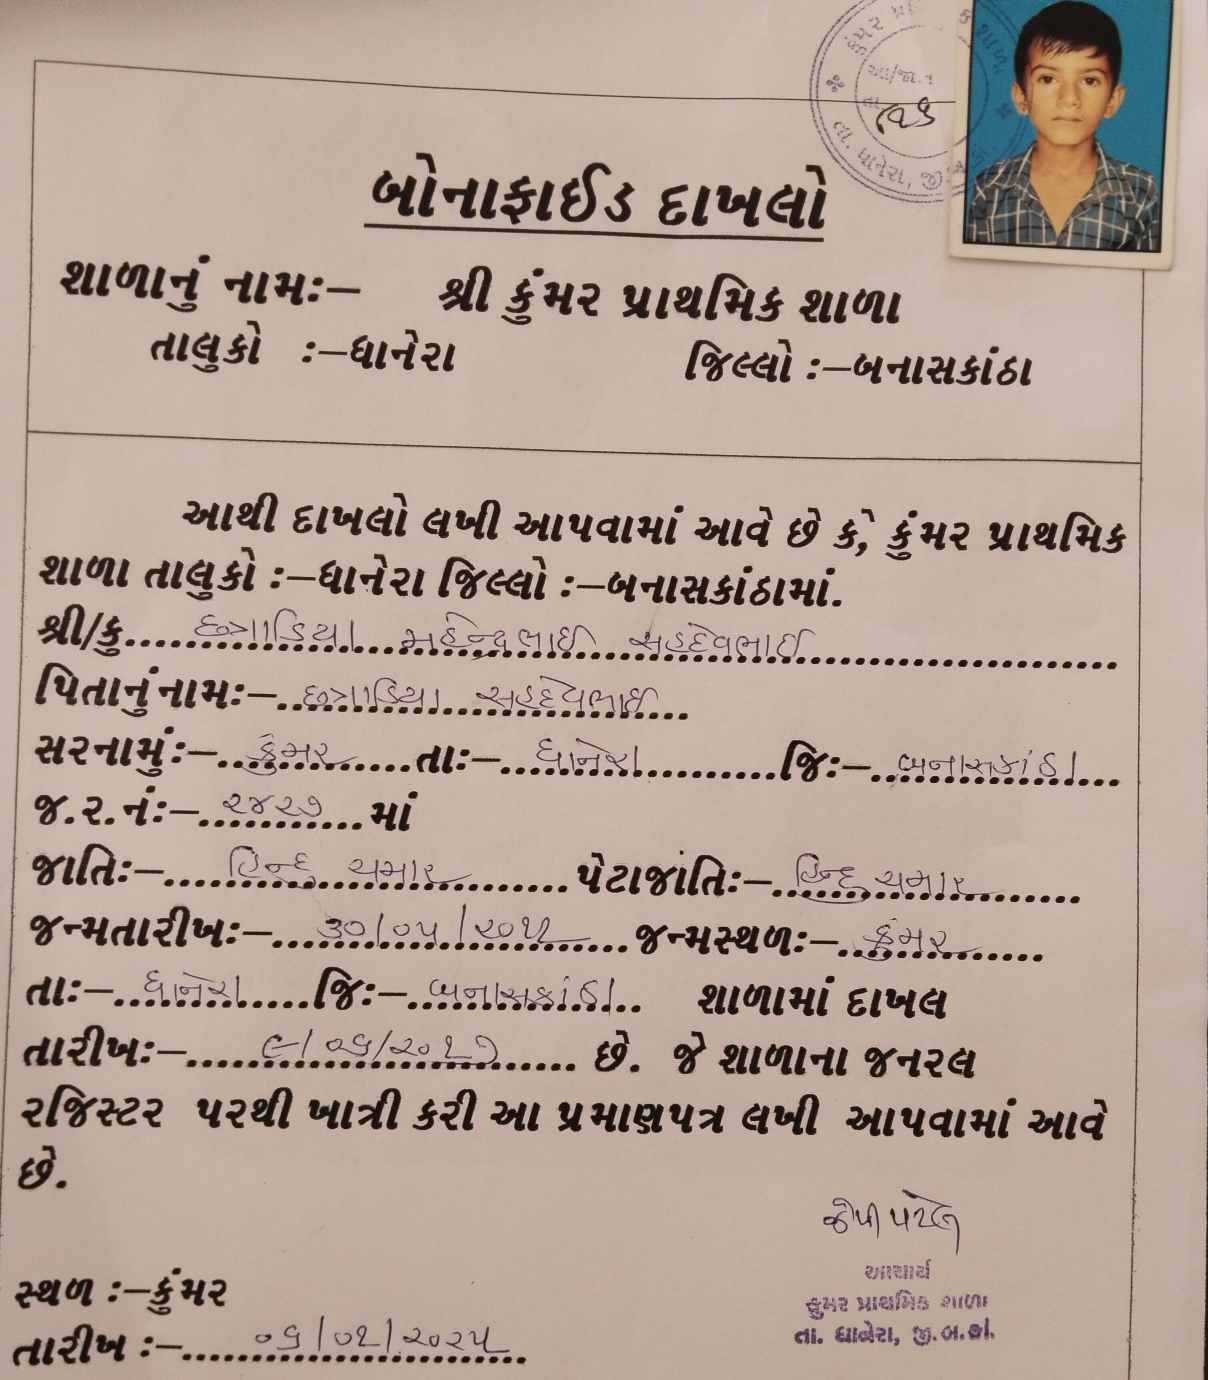 બોનાફાઈડ દાખલો
શાળાનું નામઃ– શ્રી કુંમર પ્રાથમિક શાળા
તાલુકો :–ધાનેરા જિલ્લો :–બનાસકાંઠા
આથી દાખલો લખી આપવામાં આવે છે કે, કુંમર પ્રાથમિક
શાળા તાલુકો :–ધાનેરા જિલ્લો :–બનાસકાંઠામાં.
શ્રી/કુ..... છગાડિયા મહેન્દ્રભાઈ સહદેવભાઈ
પિતાનું નામઃ– છગાડિયા સહદેવભાઈ
સરનામુંઃ– કુંમર તાઃ– ધાનેરા જિઃ– બનાસકાંઠા
જ.ર.નંઃ– ૨૪૨૭ માં
જાતિઃ– હિન્દુ ચમાર પેટાજાતિઃ– હિન્દુ ચમાર
જન્મતારીખઃ– ૩૦/૦૫/૨૦૧૧ જન્મસ્થળઃ– કુંમર
તાઃ– ધાનેરા જિઃ– બનાસકાંઠા શાળામાં દાખલ
તારીખઃ– ૯/૦૬/૨૦૧૭ છે. જે શાળાના જનરલ
રજિસ્ટર પરથી ખાત્રી કરી આ પ્રમાણપત્ર લખી આપવામાં આવે
છે.
આચાર્ય
કુમર પ્રાથમિક શાળા
તા. ધાનેરા, જી.બ.કાં.
સ્થળ :–કુંમર
તારીખ :– ૦૬/૦૧/૨૦૨૫